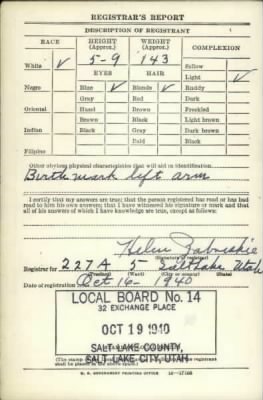 REGISTRAR'S REPORT
DESCRIPTION OF REGISTRANT
RACE HEIGHT (Approx.) WEIGHT (Approx.) COMPLEXION
5-9 143 Sallow
White ✓ EYES HAIR Light ✓
Negro Blue ✓ Blonde ✓ Ruddy
Gray Red Dark
Oriental Hazel Brown Freckled
Brown Black Light brown
Indian Black Gray Dark brown
Bald Black
Filipino
Other obvious physical characteristics that will aid in identification
Birth mark left arm
I certify that my answers are true; that the person registered has read or has had
read to him his own answers; that I have witnessed his signature or mark and that
all of his answers of which I have knowledge are true, except as follows:
Helen Zabriskie
(Signature of registrar)
Registrar for 227A 5 Salt Lake Utah
(Precinct) (Ward) (City or county) (State)
Date of registration Oct 16- 1940
LOCAL BOARD No. 14
32 EXCHANGE PLACE
OCT 19 1940
SALT LAKE COUNTY,
SALT LAKE CITY, UTAH
(The stamp
shall be placed in the above space.)
U. S. GOVERNMENT PRINTING OFFICE 16-17105